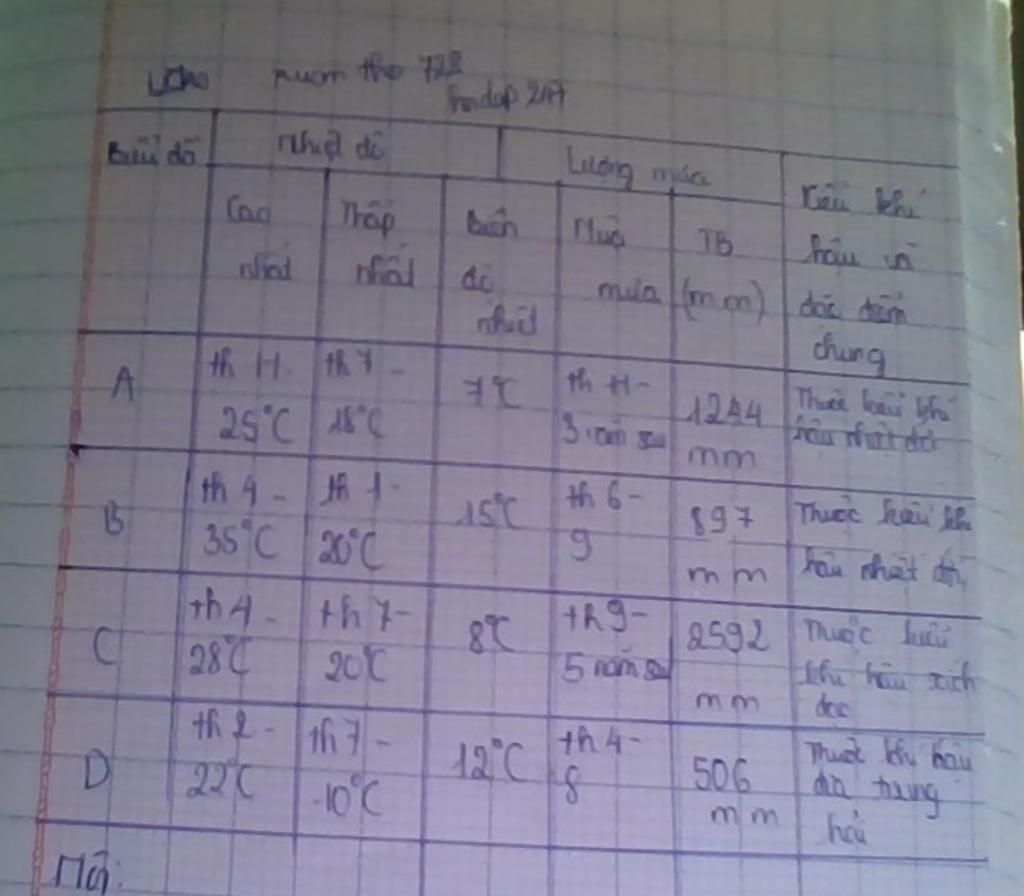 nuom tho 722
hoidap 247
Biểu đồ
nhiệt độ
Lượng mưa
Kiểu khí hậu và đặc điểm chung
Cao nhất
Thấp nhất
Biên độ nhiệt
Mùa mưa
TB (mm)
A
th 11 25°C
th 7 - 18°C
7°C
th 11 - 3 năm sau
1244 mm
Thuộc kiểu khí hậu nhiệt đới
B
th 4 - 35°C
th 1 - 20°C
15°C
th 6 - 9
897 mm
Thuộc kiểu khí hậu nhiệt đới
C
th 4 - 28°C
th 7 - 20°C
8°C
th 9 - 5 năm sau
2592 mm
Thuộc kiểu khí hậu xích đạo
D
th 2 - 22°C
th 7 - 10°C
12°C
th 4 - 8
506 mm
Thuộc khí hậu địa trung hải